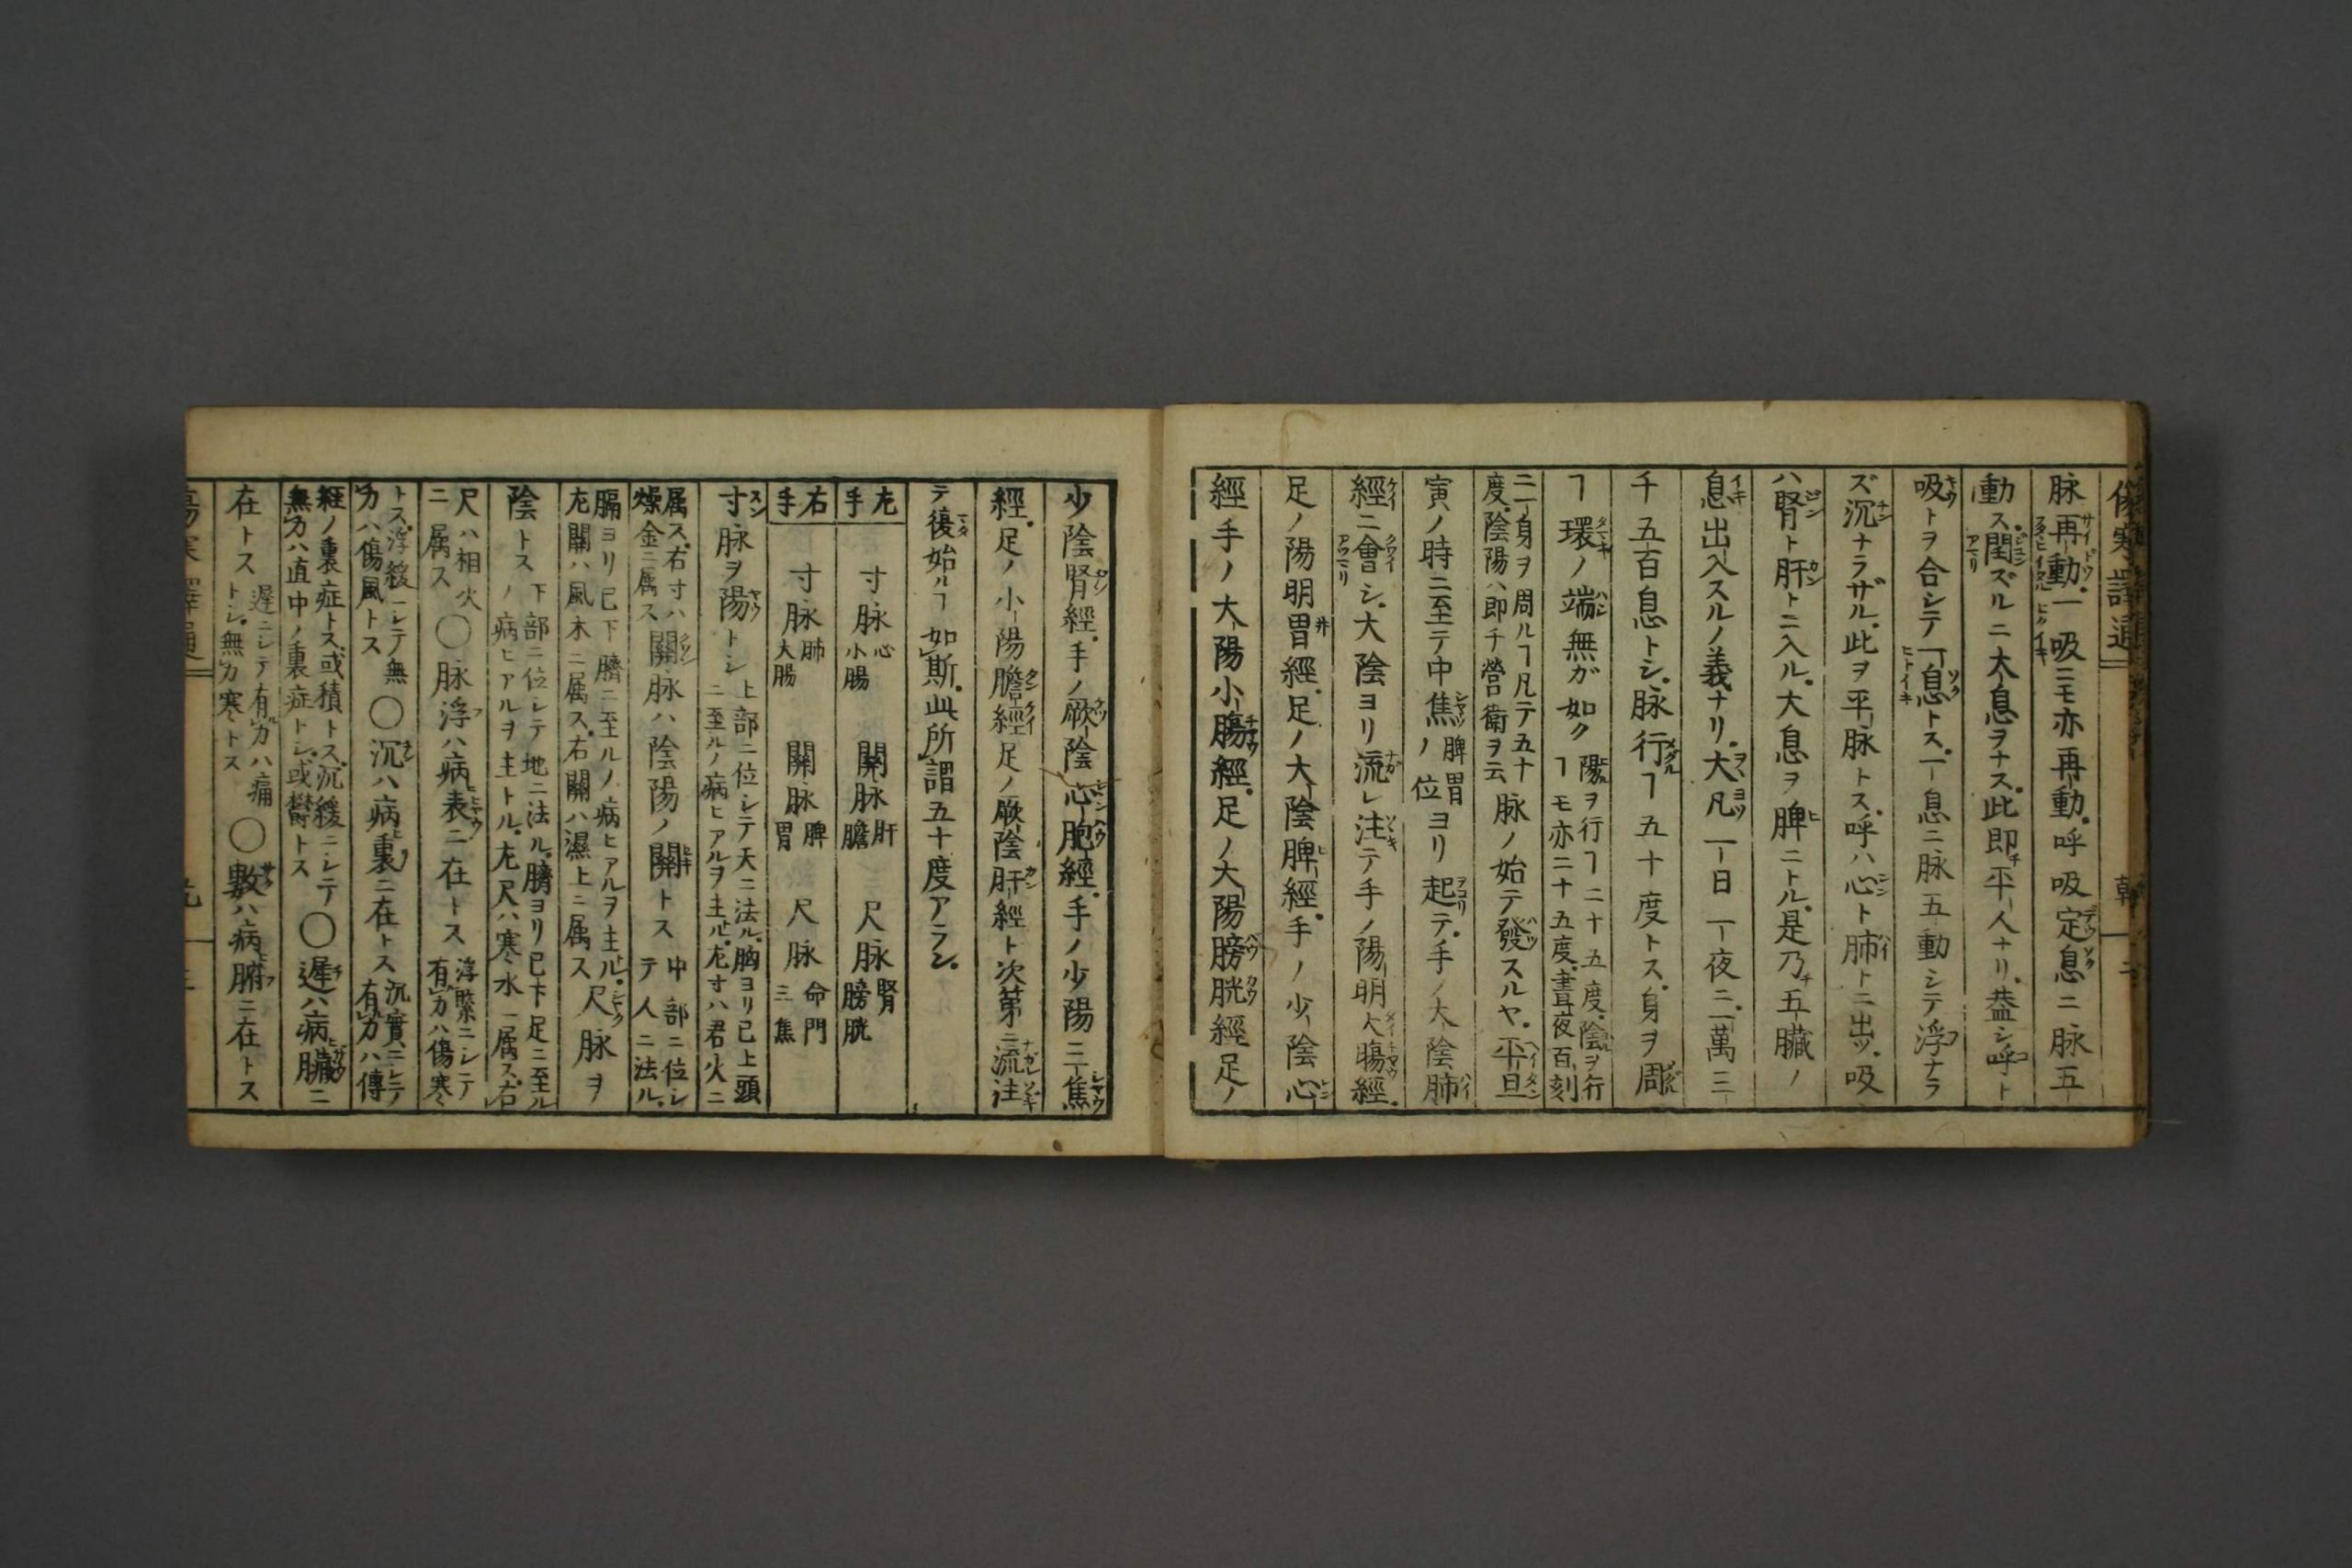 脉再動一吸ニモ亦再動呼吸定息ニ脉五
動ス閏ズルニ太息ヲナス此即平人ナリ蓋シ呼ト
吸トヲ合シテ一息トス一息ニ脉五動シテ浮ナラ
ズ沉ナラザル此ヲ平脉トス呼ハ心ト肺トニ出ツ吸
ハ腎ト肝トニ入ル大息ヲ脾ニトル是乃五臓ノ
息出入スルノ義ナリ大凡一日一夜ニ一萬三
千五百息トシ脉行ヿ五十度トス身ヲ周
ヿ環ノ端無ガ如ク陽ヲ行ヿ二十五度陰ヲ行
ヿモ亦二十五度晝夜百刻
ニ一身ヲ周ルヿ凡テ五十
度陰陽ハ即チ營衛ヲ云脉ノ始テ發スルヤ平旦
寅ノ時ニ至テ中焦ノ脾胃
位ヨリ起テ手ノ太陰肺
經ニ會シ大陰ヨリ流レ注テ手ノ陽明大腸經
足ノ陽明胃經足ノ大陰脾經手ノ少陰心
經手ノ大陽小腸經足ノ大陽膀胱經足ノ
少陰腎經手ノ厥陰心胞經手ノ少陽三焦
經足ノ小陽膽經足ノ厥陰肝經ト次第ニ流注
テ復始ルヿ如斯此所謂五十度アラン
左手 寸脉 心 小腸 關脉 肝 膽 尺脉 腎 膀胱
右手 寸脉 肺 大腸 關脉 脾 胃 尺脉 命門 三焦
寸脉ヲ陽トシ上部ニ位シテ天ニ法ル胸ヨリ已上頭
ニ至ルノ病ヒアルヲ主ル左寸ハ君火ニ
属ス右寸ハ
燥金ニ属ス關脉ハ陰陽ノ關トス中部ニ位シ
テ人ニ法ル
膈ヨリ已下臍ニ至ルノ病ヒアルヲ主ル
左關ハ風木ニ属ス右關ハ濕土ニ属ス尺脉ヲ
陰トス下部ニ位シテ地ニ法ル臍ヨリ已下足ニ至ル
ノ病ヒアルヲ主トル左尺ハ寒水ニ属ス右
尺ハ相火
ニ属ス〇脉浮ハ病表ニ在トス浮緊ニシテ
有力ハ傷寒
トス浮緩ニシテ無
力ハ傷風トス〇沉ハ病裏ニ在トス沉實ニシテ
有力ハ傳
經ノ裏症トス或積トス沉緩ニシテ
無力ハ直中ノ裏症トシ或欝トス〇遲ハ病臓ニ
在トス遲ニシテ有力ハ痛
トシ無力寒トス〇數ハ病腑ニ在トス